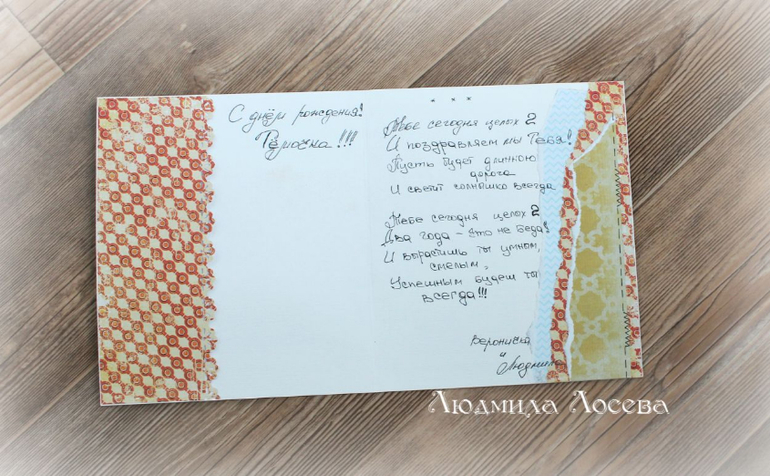 С днём рождения!
Тёмочка!!!
* * *
Тебе сегодня целых 2
И поздравляем мы Тебя!
Пусть будет длинною
дорога
И светит солнышко всегда
Тебе сегодня целых 2
Два года - это не беда!
И вырастишь ты умным,
смелым,
Успешным будеш ты
всегда!!!
Вероника
и Людмила
Людмила Лосева